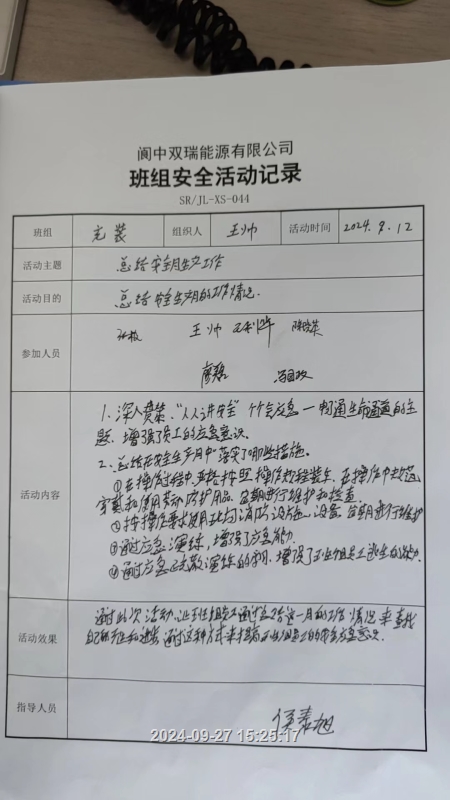 阆中双瑞能源有限公司
班组安全活动记录
SR/JL-XS-044
班组 充装 组织人 王帅 活动时间 2024.9.12
活动主题 总结安全月生产工作
活动目的 总结安全生产月的工作情况.
参加人员 王帅
廖
活动内容 1、深入贯策"人人讲安全 个个会应急 — 畅通生命通道的主
题,增强了员工的应急意识。
2、总结在安全生产月中落实了哪些措施。
①在操作过程中,严格按照操作规程装车,在操作中规范
穿戴和使用劳动防护用品,定期进行维护和检查
②按操作要求使用 消防设施、设备,定期进行维护
③通过应急演练,增强了应急能力.
④通过应急疏散演练的 ,增强了班组员工逃生的能力.
活动效果 通过此次活动,让班组员工通过总结这一月的工作情况来查找
自己的不足和进步,通过这种方式来提高 员工的安全应急意识.
指导人员
2024-09-27 15:25:17